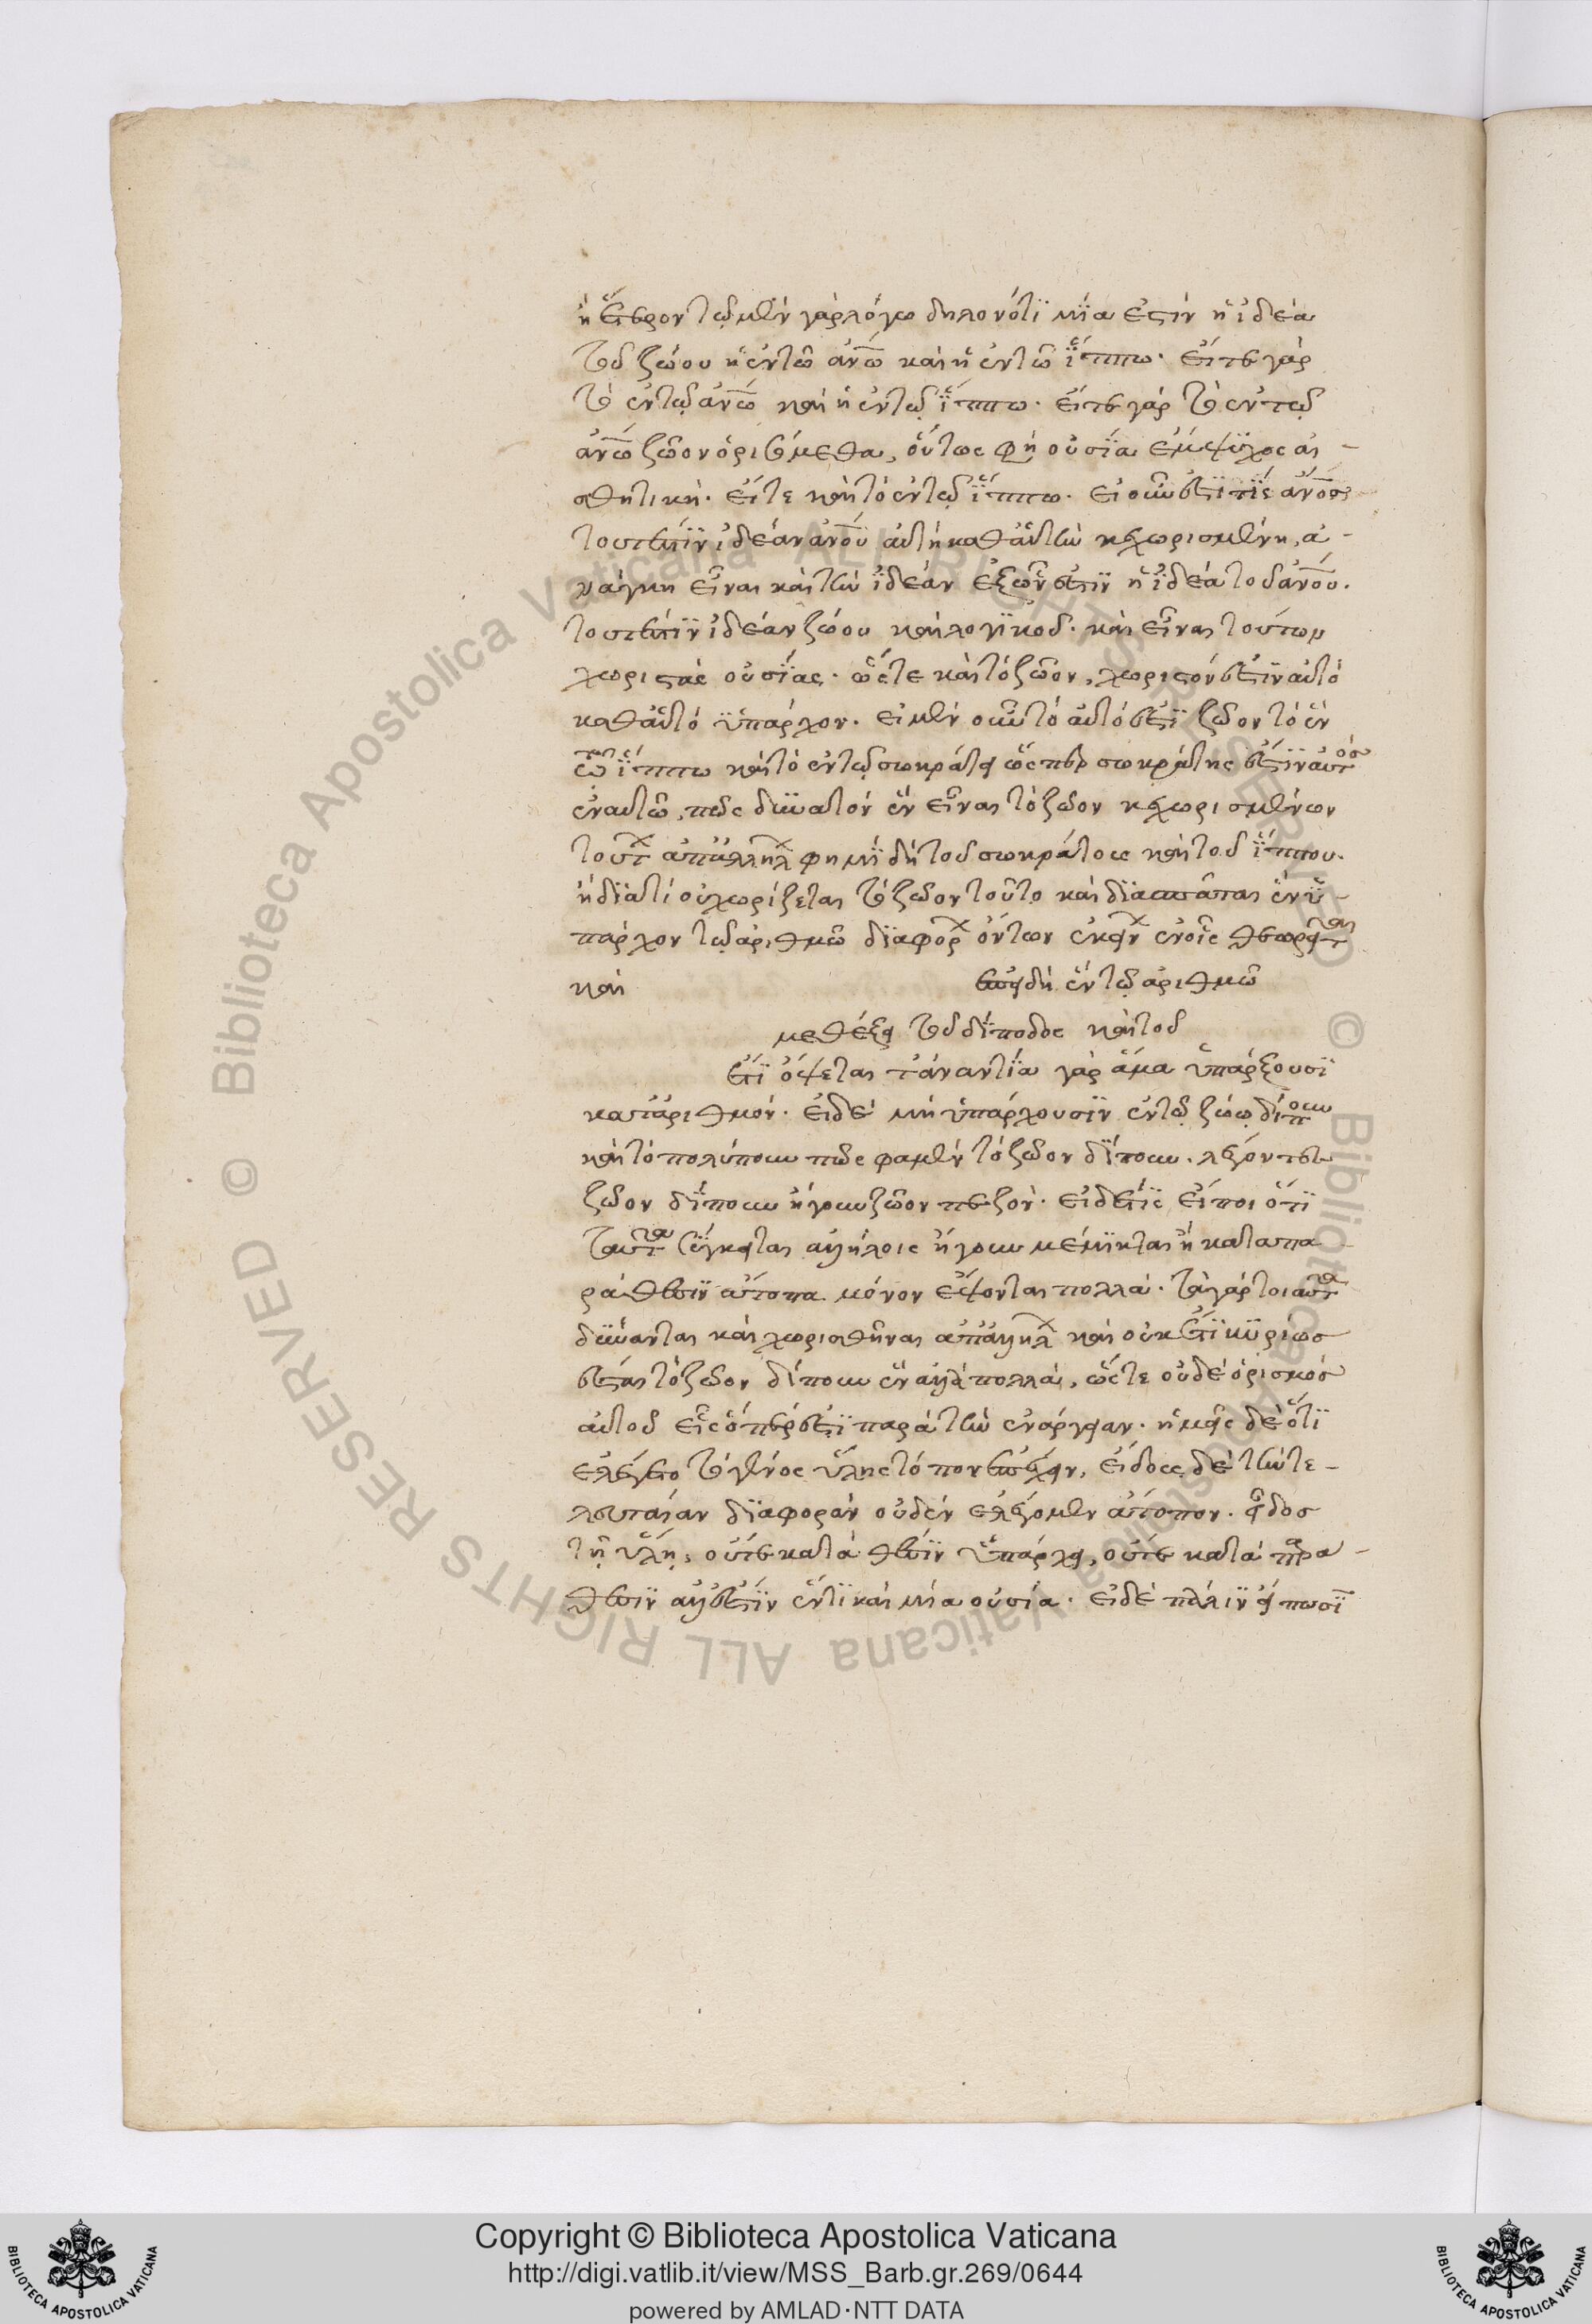 ἢ ἕτερον τῷ μὲν γὰρ λόγω δηλονότι μία ἐστὶν ἡ ἰδέα
τοῦ ζώου ἡ ἐν τῶ ἀν̅ω̅ καὶ ἡ ἐν τῶ ἵππω. εἴτε γὰρ
τὸ ἐν τῷ ἀν̅ω̅ καὶ ἡ ἐν τῷ ἵππω. εἴτε γὰρ τὸ ἐν τῷ
ἀν̅ω̅ ζῶον ὁρισόμεθα, οὕτως οὐσία ἔμψυχος αἰ-
σθητική. εἴτε καὶ τὸ ἐν τῷ ἵππω. εἰ οὖν ἐστί τις ἄν̅ο̅ς
τουτέστιν ἰδέαν ἀν̅ο̅υ αὐτὴ καθ' αὑτὴν κεχωρισμένη, ἀ-
νάγκη εἶναι καὶ τὴν ἰδέαν ἐξ ὧν ἐστὶν ἡ ἰδέα τοῦ ἀν̅ο̅υ.
τουτέστιν ἰδέαν ζώου καὶ λογικοῦ. καὶ εἶναι τούτων
χωριστὰς οὐσίας. ὥστε καὶ τὸ ζῶον, χωριστόν ἐστιν αὐτὸ
καθ' αὑτὸ ὑπάρχον. εἰ μὲν οὖν τὸ αὐτό ἐστι ζῶον τὸ ἐν
τῶ ἵππω καὶ τὸ ἐν τῷ σωκράτει ὥσπερ σωκράτης ἐστὶν αὐτὸς
ἐν αυτῶ, πῶς δυνατὸν ἓν εἶναι τὸ ζῶον κεχωρισμένων
τούτων ἀπ' ἀλλήλων φημὶ δὴ τοῦ σωκράτους καὶ τοῦ ἵππου.
ἢ διατί οὐ χωρίζεται τὸ ζῶον τοῦτο καὶ διασπᾶται ἓν ὑ-
πάρχον τῷ ἀριθμῶ διαφόρων ὄντων ἐκείνων ἐν οἷς θεωρεῖται
καὶ ἐπειδὴ ἓν τῷ ἀριθμῶ
μεθέξει τοῦ δίποδος καὶ τοῦ
ἔτι ὄψεται τἀναντία γὰρ ἅμα ὑπάρξουσι
κατ' ἀριθμόν. εἰ δὲ μὴ ὑπάρχουσιν ἐν τῷ ζώῳ δίπουν
καὶ τὸ πολύπουν πῶς φαμὲν τὸ ζῶον δίπουν. λέγοντες
ζῶον δίπουν ἤγουν ζῶον πεζόν. εἰ δέ τις εἴποι ὅτι
ταῦτα σύγκειται ἀλλήλοις ἤγουν μέμικται ἢ κατὰ πα
ράθεσιν ἄτοπα μόνον ἕψονται πολλά. τὰ γὰρ τοιαῦτα
δύνανται καὶ χωρισθῆναι ἀπ' ἀλλήλων καὶ οὐκ ἔτι κυρίως
ἔσται τὸ ζῶον δίπουν ἓν ἀλλὰ πολλά, ὥστε οὐδὲ ὁρισμὸς
αὐτοῦ εἷς ὅπερ ἐστὶ παρὰ τὴν ἐνάργειαν. ἡμεῖς δὲ ὅτι
ἐλέγετο τὸ γένος ὕλης τόπον ἐπέχειν, εἴδους δὲ τὴν τε-
λευταίαν διαφορὰν οὐδὲν ἐλέγομεν ἄτοπον. εἶδος
τῇ ὕλῃ, οὔτε κατὰ θέσιν ὑπάρχει, οὔτε κατὰ παρα-
θεσιν ἀλλ' ἔστιν ἕν τι καὶ μία οὐσία. εἰ δὲ πάλιν εἴπωσι